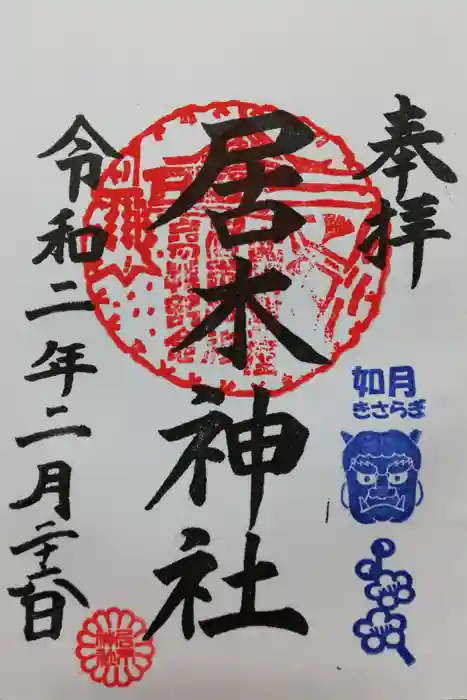 奉拝
如月
きさらぎ
居木神社
令和二年二月二十八日